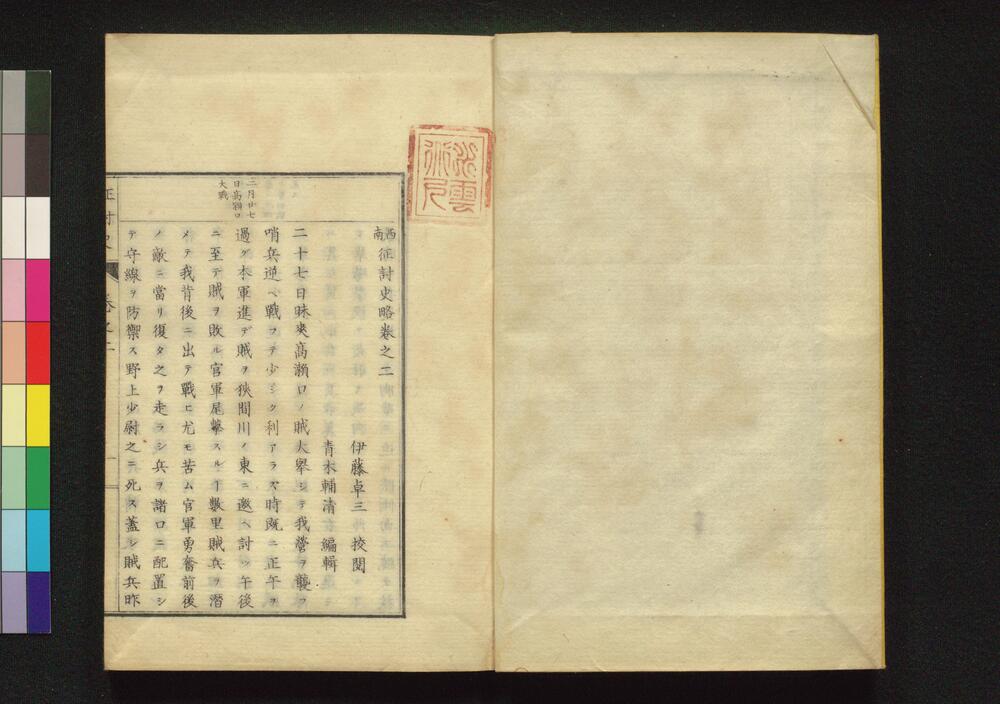 西南征討史略卷之二
伊藤卓三 挍閲
青木輔清 編輯
二月廿七
日高瀬口
大戰
二十七日昧爽高瀬口ノ賊大擧シテ我營ヲ襲フ
哨兵逆ヘ戰フテ少シク利アラズ時既ニ正午ヲ
過グ本軍進デ賊ヲ狹間川ノ東ニ邀ヘ討ツ午後
ニ至テ賊ヲ敗ル官軍尾撃スルヿ數里賊兵ヲ潛
メテ我背後ニ出テ戰ヒ尤モ苦ム官軍勇奮前後
ノ敵ニ當リ復タ之ヲ走ラシ兵ヲ諸口ニ配置シ
テ守線ヲ防禦ス野上少尉之ニ死ス蓋シ賊兵昨
征討史
卷之二
一